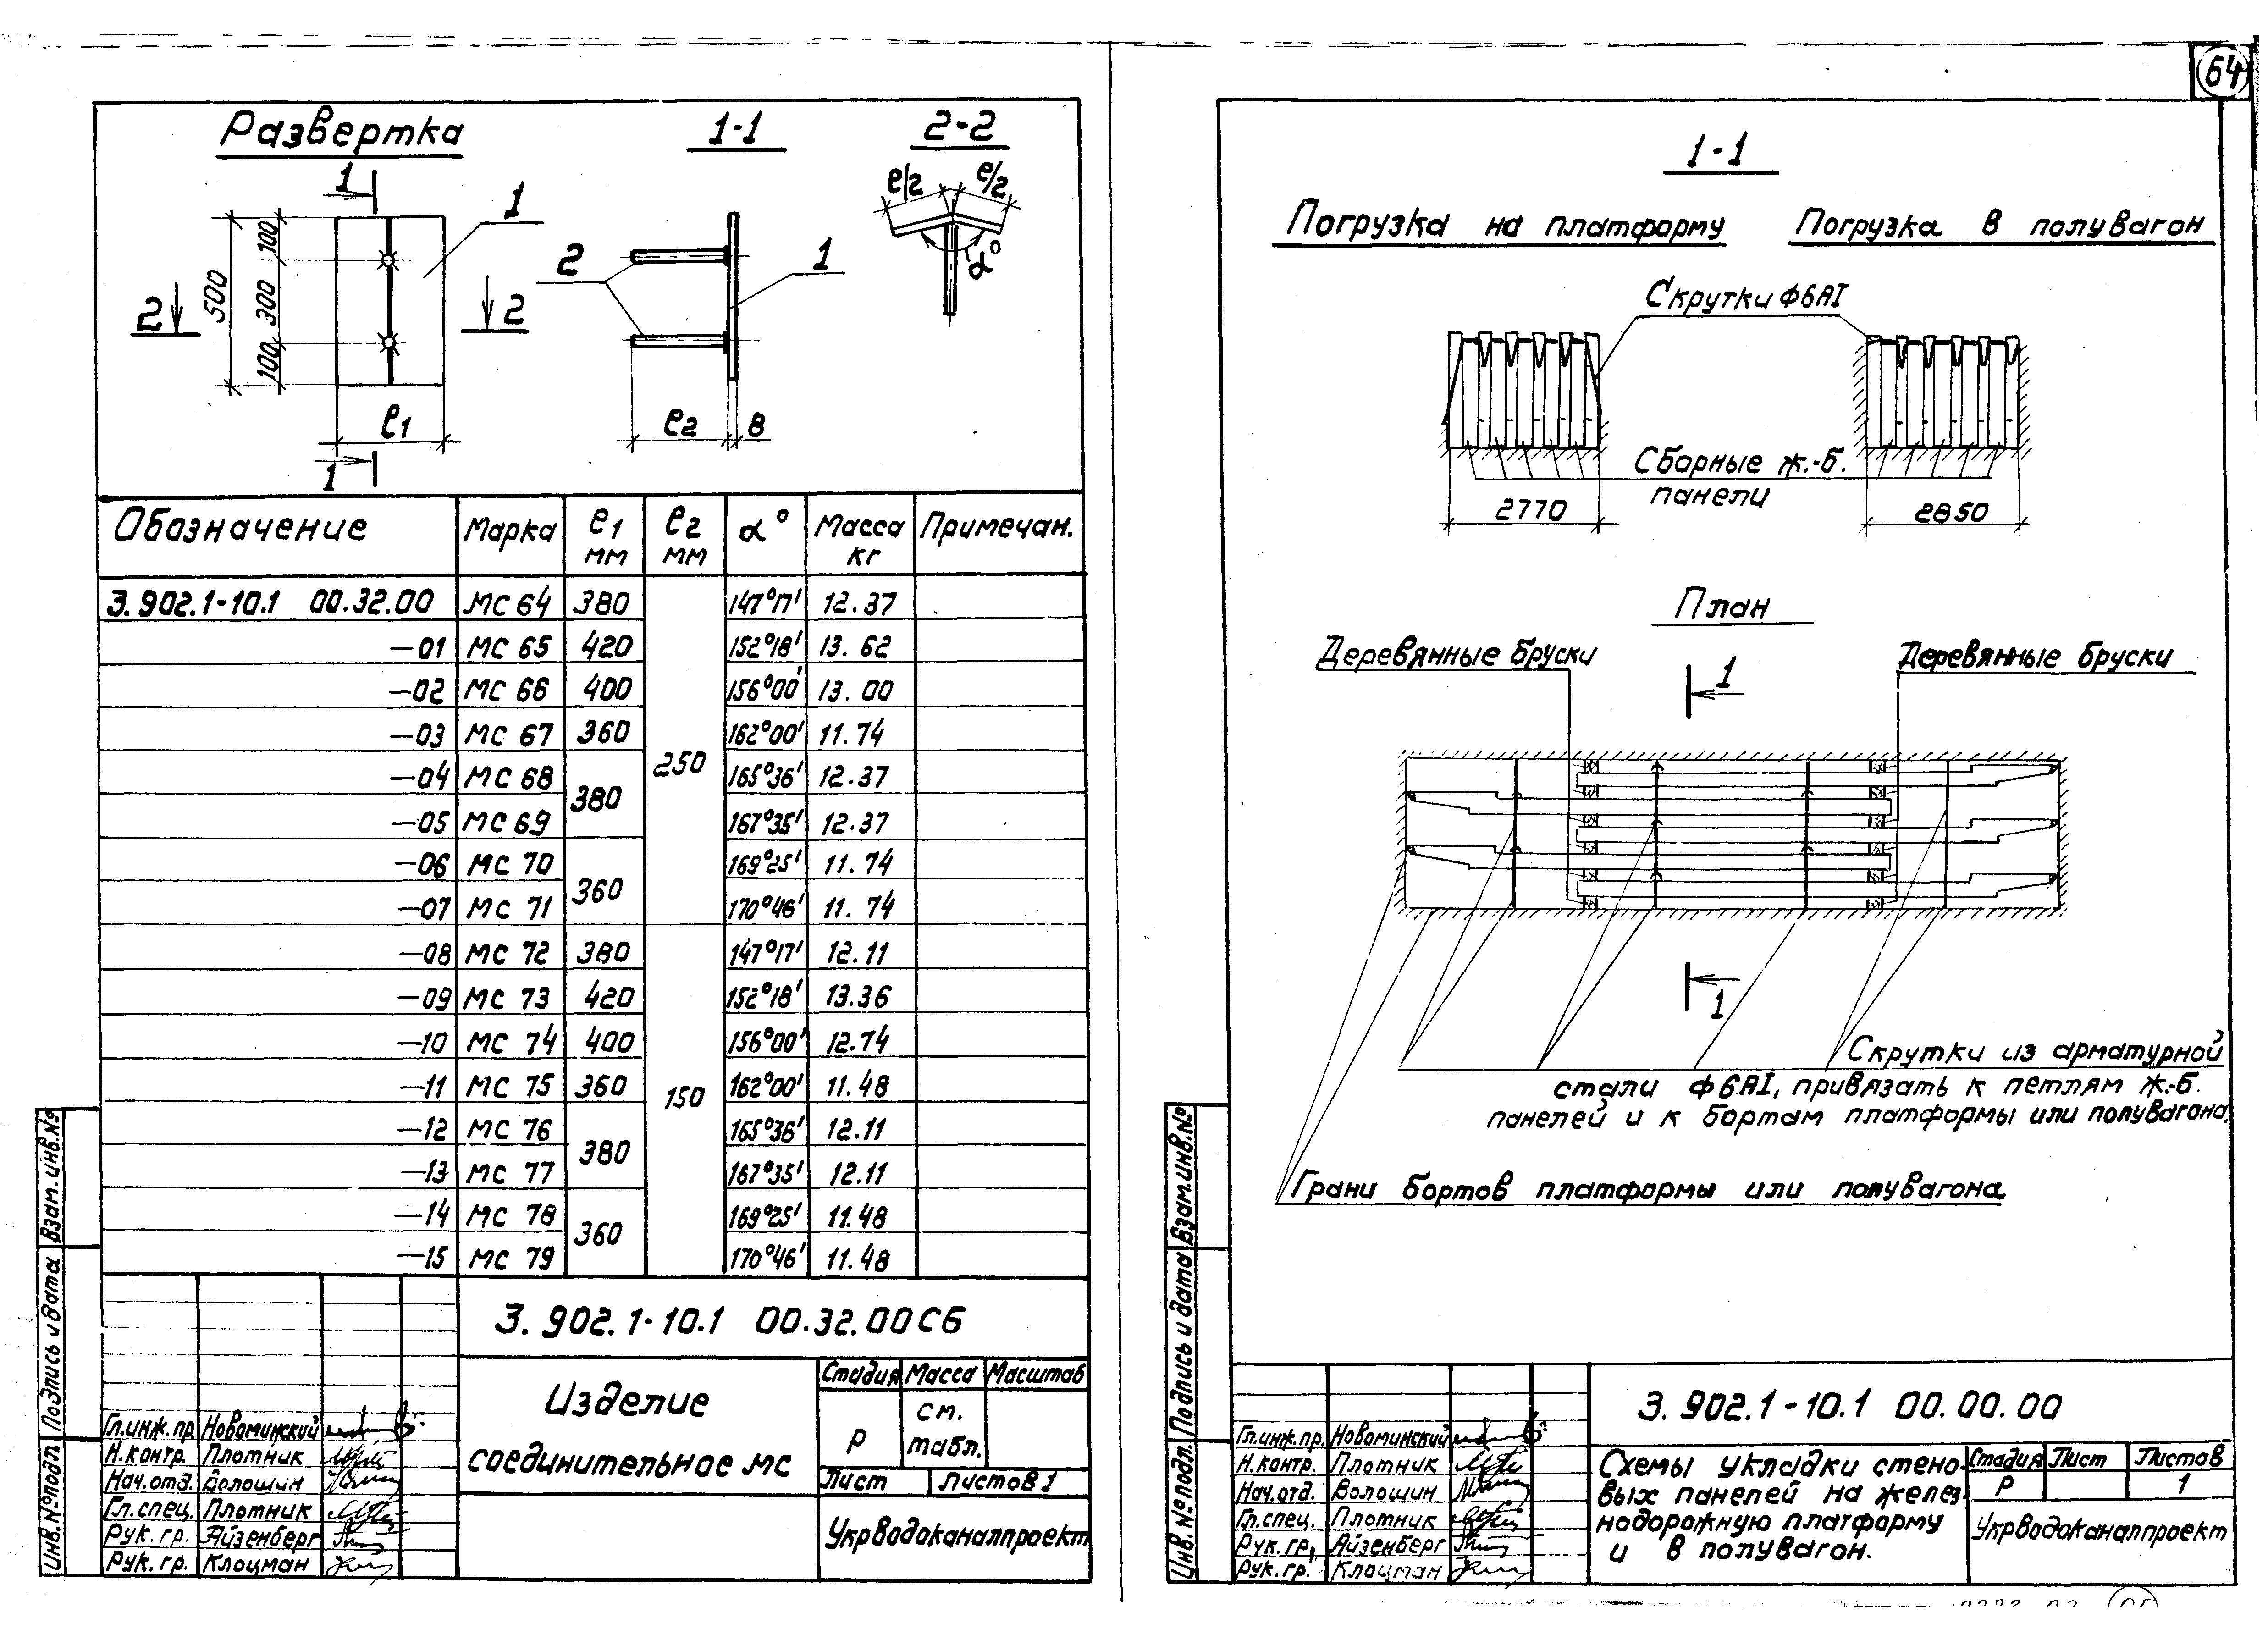 64
Развертка
1-1
2-2
1
1
500
100
300
100
2
2
ℓ1
1
2
1
ℓ2
8
ℓ/2
ℓ/2
α°
Обозначение Марка ℓ1 мм ℓ2 мм α° Масса кг Примечан.
3.902.1-10.1 00.32.00 МС 64 380 147°17' 12.37
—01 МС 65 420 152°18' 13.62
—02 МС 66 400 156°00' 13.00
—03 МС 67 360 162°00' 11.74
250
—04 МС 68 380 165°36' 12.37
—05 МС 69 167°35' 12.37
—06 МС 70 360 169°25' 11.74
—07 МС 71 170°46' 11.74
—08 МС 72 380 147°17' 12.11
—09 МС 73 420 152°18' 13.36
—10 МС 74 400 156°00' 12.74
—11 МС 75 360 162°00' 11.48
150
—12 МС 76 380 165°36' 12.11
—13 МС 77 167°35' 12.11
—14 МС 78 360 169°25' 11.48
—15 МС 79 170°46' 11.48
3.902.1-10.1 00.32.00СБ
Изделие
соединительное мс
Стадия Масса Масштаб
Р см. табл.
Лист Листов 1
Укрводоканалпроект
Гл.инж.пр. Новоминский
Н.контр. Плотник
Нач.отд. Волошин
Гл.спец. Плотник
Рук. гр. Айзенберг
Рук. гр. Клоцман
Инв.№подл. Подпись и дата Взам.инв.№
1-1
Погрузка на платформу
Погрузка в полувагон
Скрутки ф6АI
Сборные ж.-б.
панели
2770
2850
План
Деревянные бруски
Деревянные бруски
1
1
Скрутки из арматурной
стали ф6АI, привязать к петлям ж.-б.
панелей и к бортам платформы или полувагона.
Грани бортов платформы или полувагона
3.902.1-10.1 00.00.00
Схемы укладки стено-
вых панелей на желез-
нодорожную платформу
и в полувагон.
Стадия Лист Листов
Р 1
Укрводоканалпроект
Гл.инж.пр. Новоминский
Н.контр. Плотник
Нач.отд. Волошин
Гл.спец. Плотник
Рук. гр. Айзенберг
Рук. гр. Клоцман
Инв.№подл. Подпись и дата Взам.инв.№